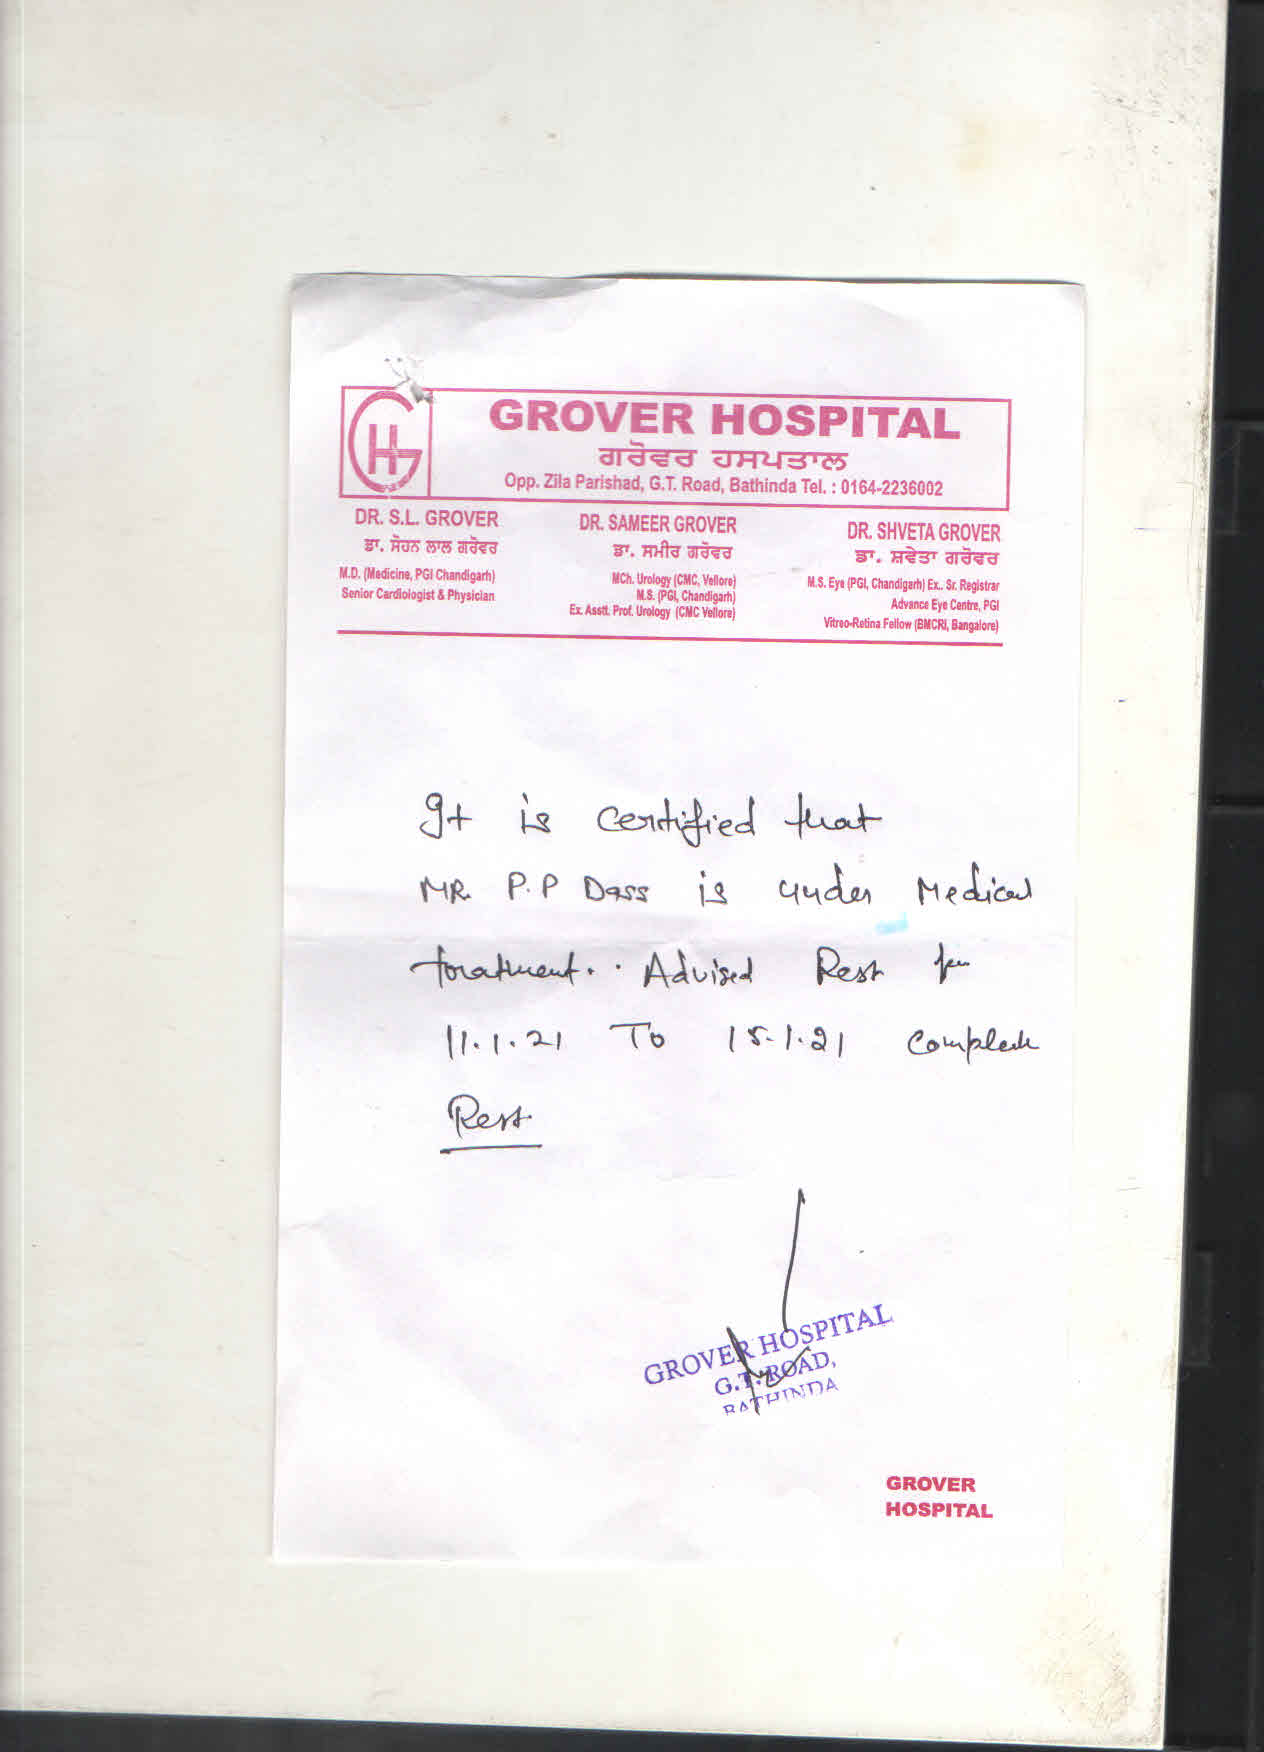 GH
GROVER HOSPITAL
ਗਰੋਵਰ ਹਸਪਤਾਲ
Opp. Zila Parishad, G.T. Road, Bathinda Tel. : 0164-2236002
DR. S.L. GROVER
ਡਾ. ਸੋਹਨ ਲਾਲ ਗਰੋਵਰ
M.D. (Medicine, PGI Chandigarh)
Senior Cardiologist & Physician
DR. SAMEER GROVER
ਡਾ. ਸਮੀਰ ਗਰੋਵਰ
MCh. Urology (CMC, Vellore)
M.S. (PGI, Chandigarh)
Ex. Asstt. Prof. Urology (CMC Vellore)
DR. SHVETA GROVER
ਡਾ. ਸ਼ਵੇਤਾ ਗਰੋਵਰ
M.S. Eye (PGI, Chandigarh) Ex.. Sr. Registrar
Advance Eye Centre, PGI
Vitreo-Retina Fellow (BMCRI, Bangalore)
It is certified that
MR. P.P Dass is under Medical
treatment. . Advised Rest for
11.1.21 To 15.1.21 Complete
Rest
GROVER HOSPITAL
G.T. ROAD,
BATHINDA
GROVER
HOSPITAL